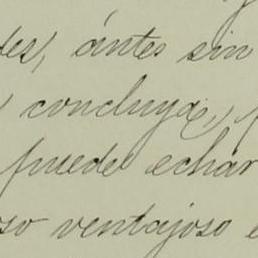 des, ántes sin
concluya,
puede echar
oso ventajoso e